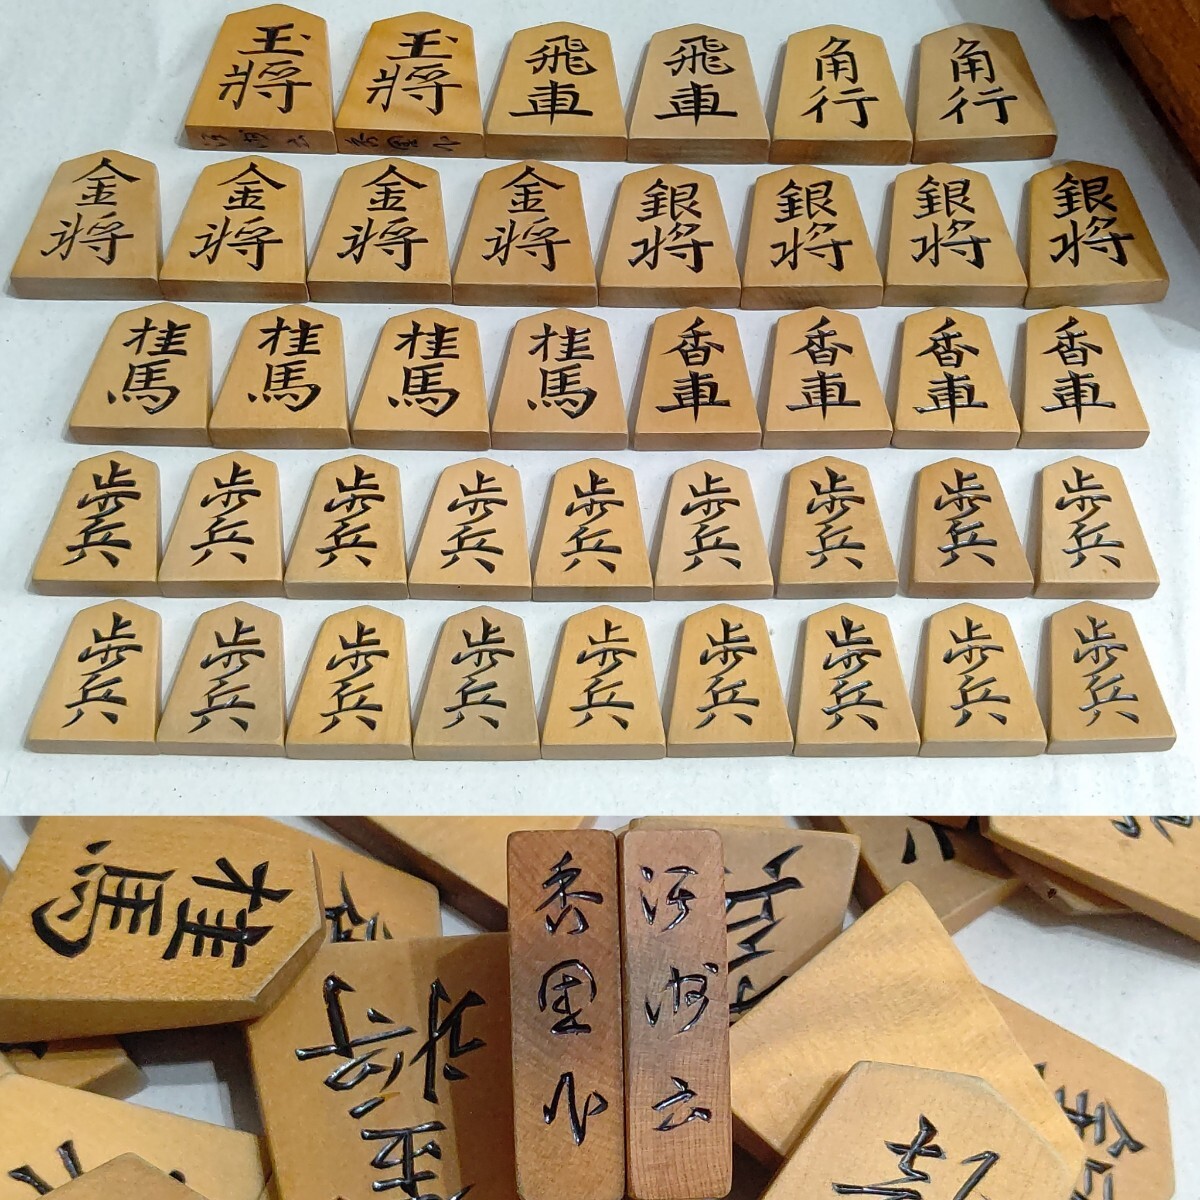 玉将 玉将 飛車 飛車 角行 角行
金将 金将 金将 金将 銀将 銀将 銀将 銀将
桂馬 桂馬 桂馬 桂馬 香車 香車 香車 香車
歩兵 歩兵 歩兵 歩兵 歩兵 歩兵 歩兵 歩兵 歩兵
歩兵 歩兵 歩兵 歩兵 歩兵 歩兵 歩兵 歩兵 歩兵
桂馬